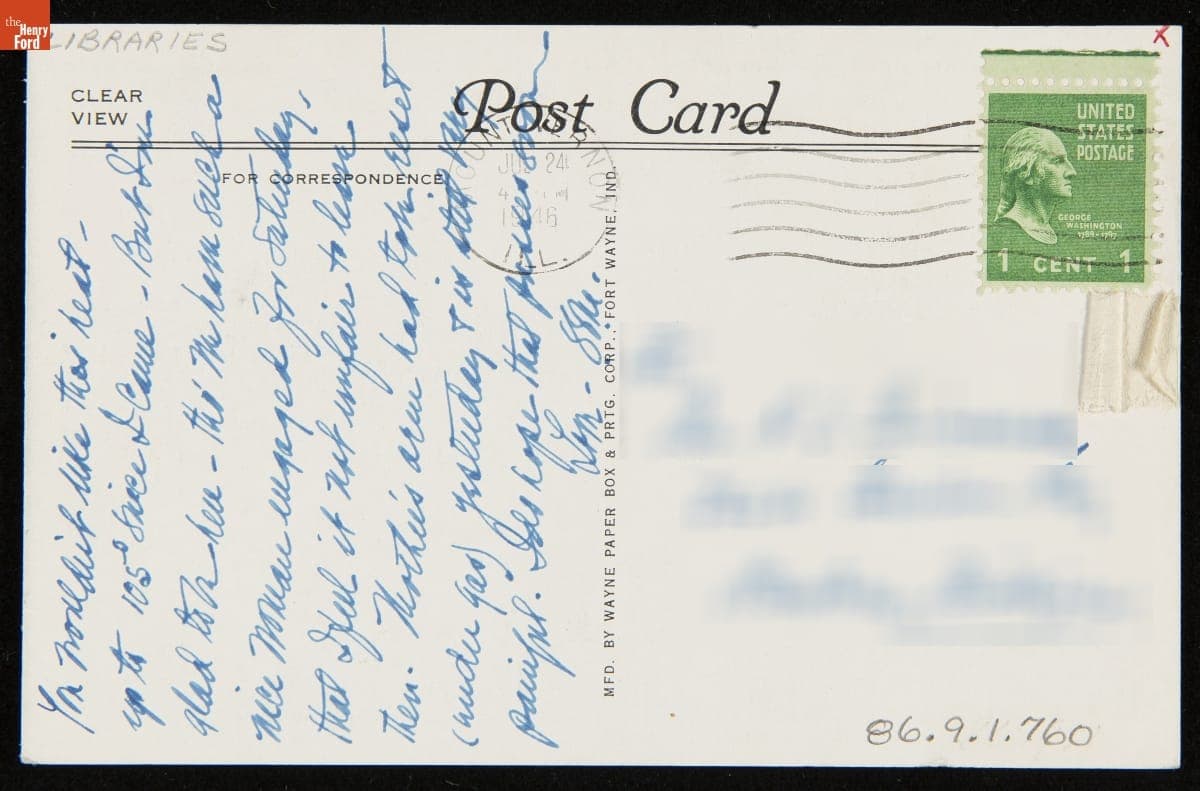 the
Henry
Ford
LIBRARIES
x
CLEAR
VIEW
Post Card
FOR CORRESPONDENCE
MOUNT VERNON
JUL 24
4 PM
1946
ILL.
UNITED
STATES
POSTAGE
GEORGE
WASHINGTON
1789-1797
1 CENT 1
You wouldn't like this heat –
up to 105° since I came – But I'm
glad to be here – tho' M has such a
nice woman engaged for Saturday,
that I feel it not unfair to leave
then. Mother's arm had to be reset
(under gas) yesterday & is still very
painful. Do hope that passes soon
MFD. BY WAYNE PAPER BOX & PRTG. CORP., FORT WAYNE, IND.
86.9.1.760